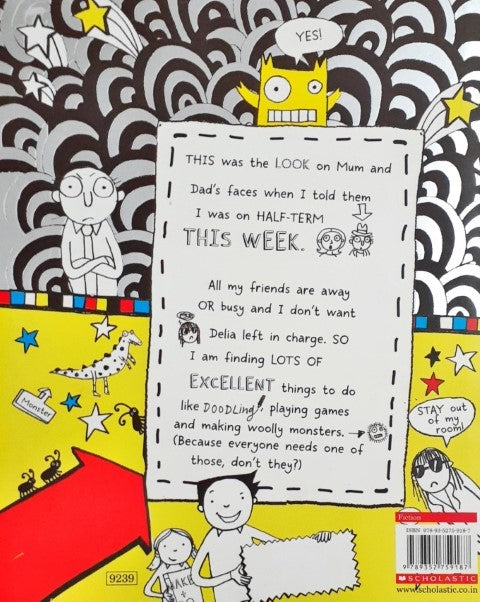 YES!
THIS was the LOOK on Mum and
Dad's faces when I told them
I was on HALF-TERM
THIS WEEK.
All my friends are away
OR busy and I don't want
Delia left in charge. SO
I am finding LOTS OF
EXCELLENT things to do
like DOODLING, playing games
and making woolly monsters.
(Because everyone needs one of
those, don't they?)
Monster
STAY out
of my
room!
Fiction
ISBN 978-93-5275-918-7
9 789352 759187
SCHOLASTIC
www.scholastic.co.in
9239
MAKE
+